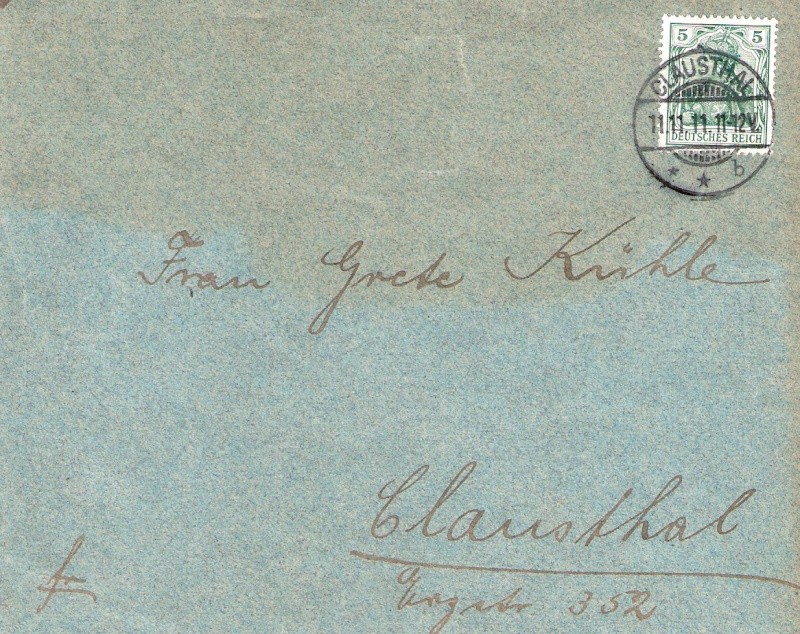 5 5
CLAUSTHAL
11.11.11.11-12V.
DEUTSCHES REICH
* * b
Frau Grete Kühle
Clausthal
Erzstr. 352